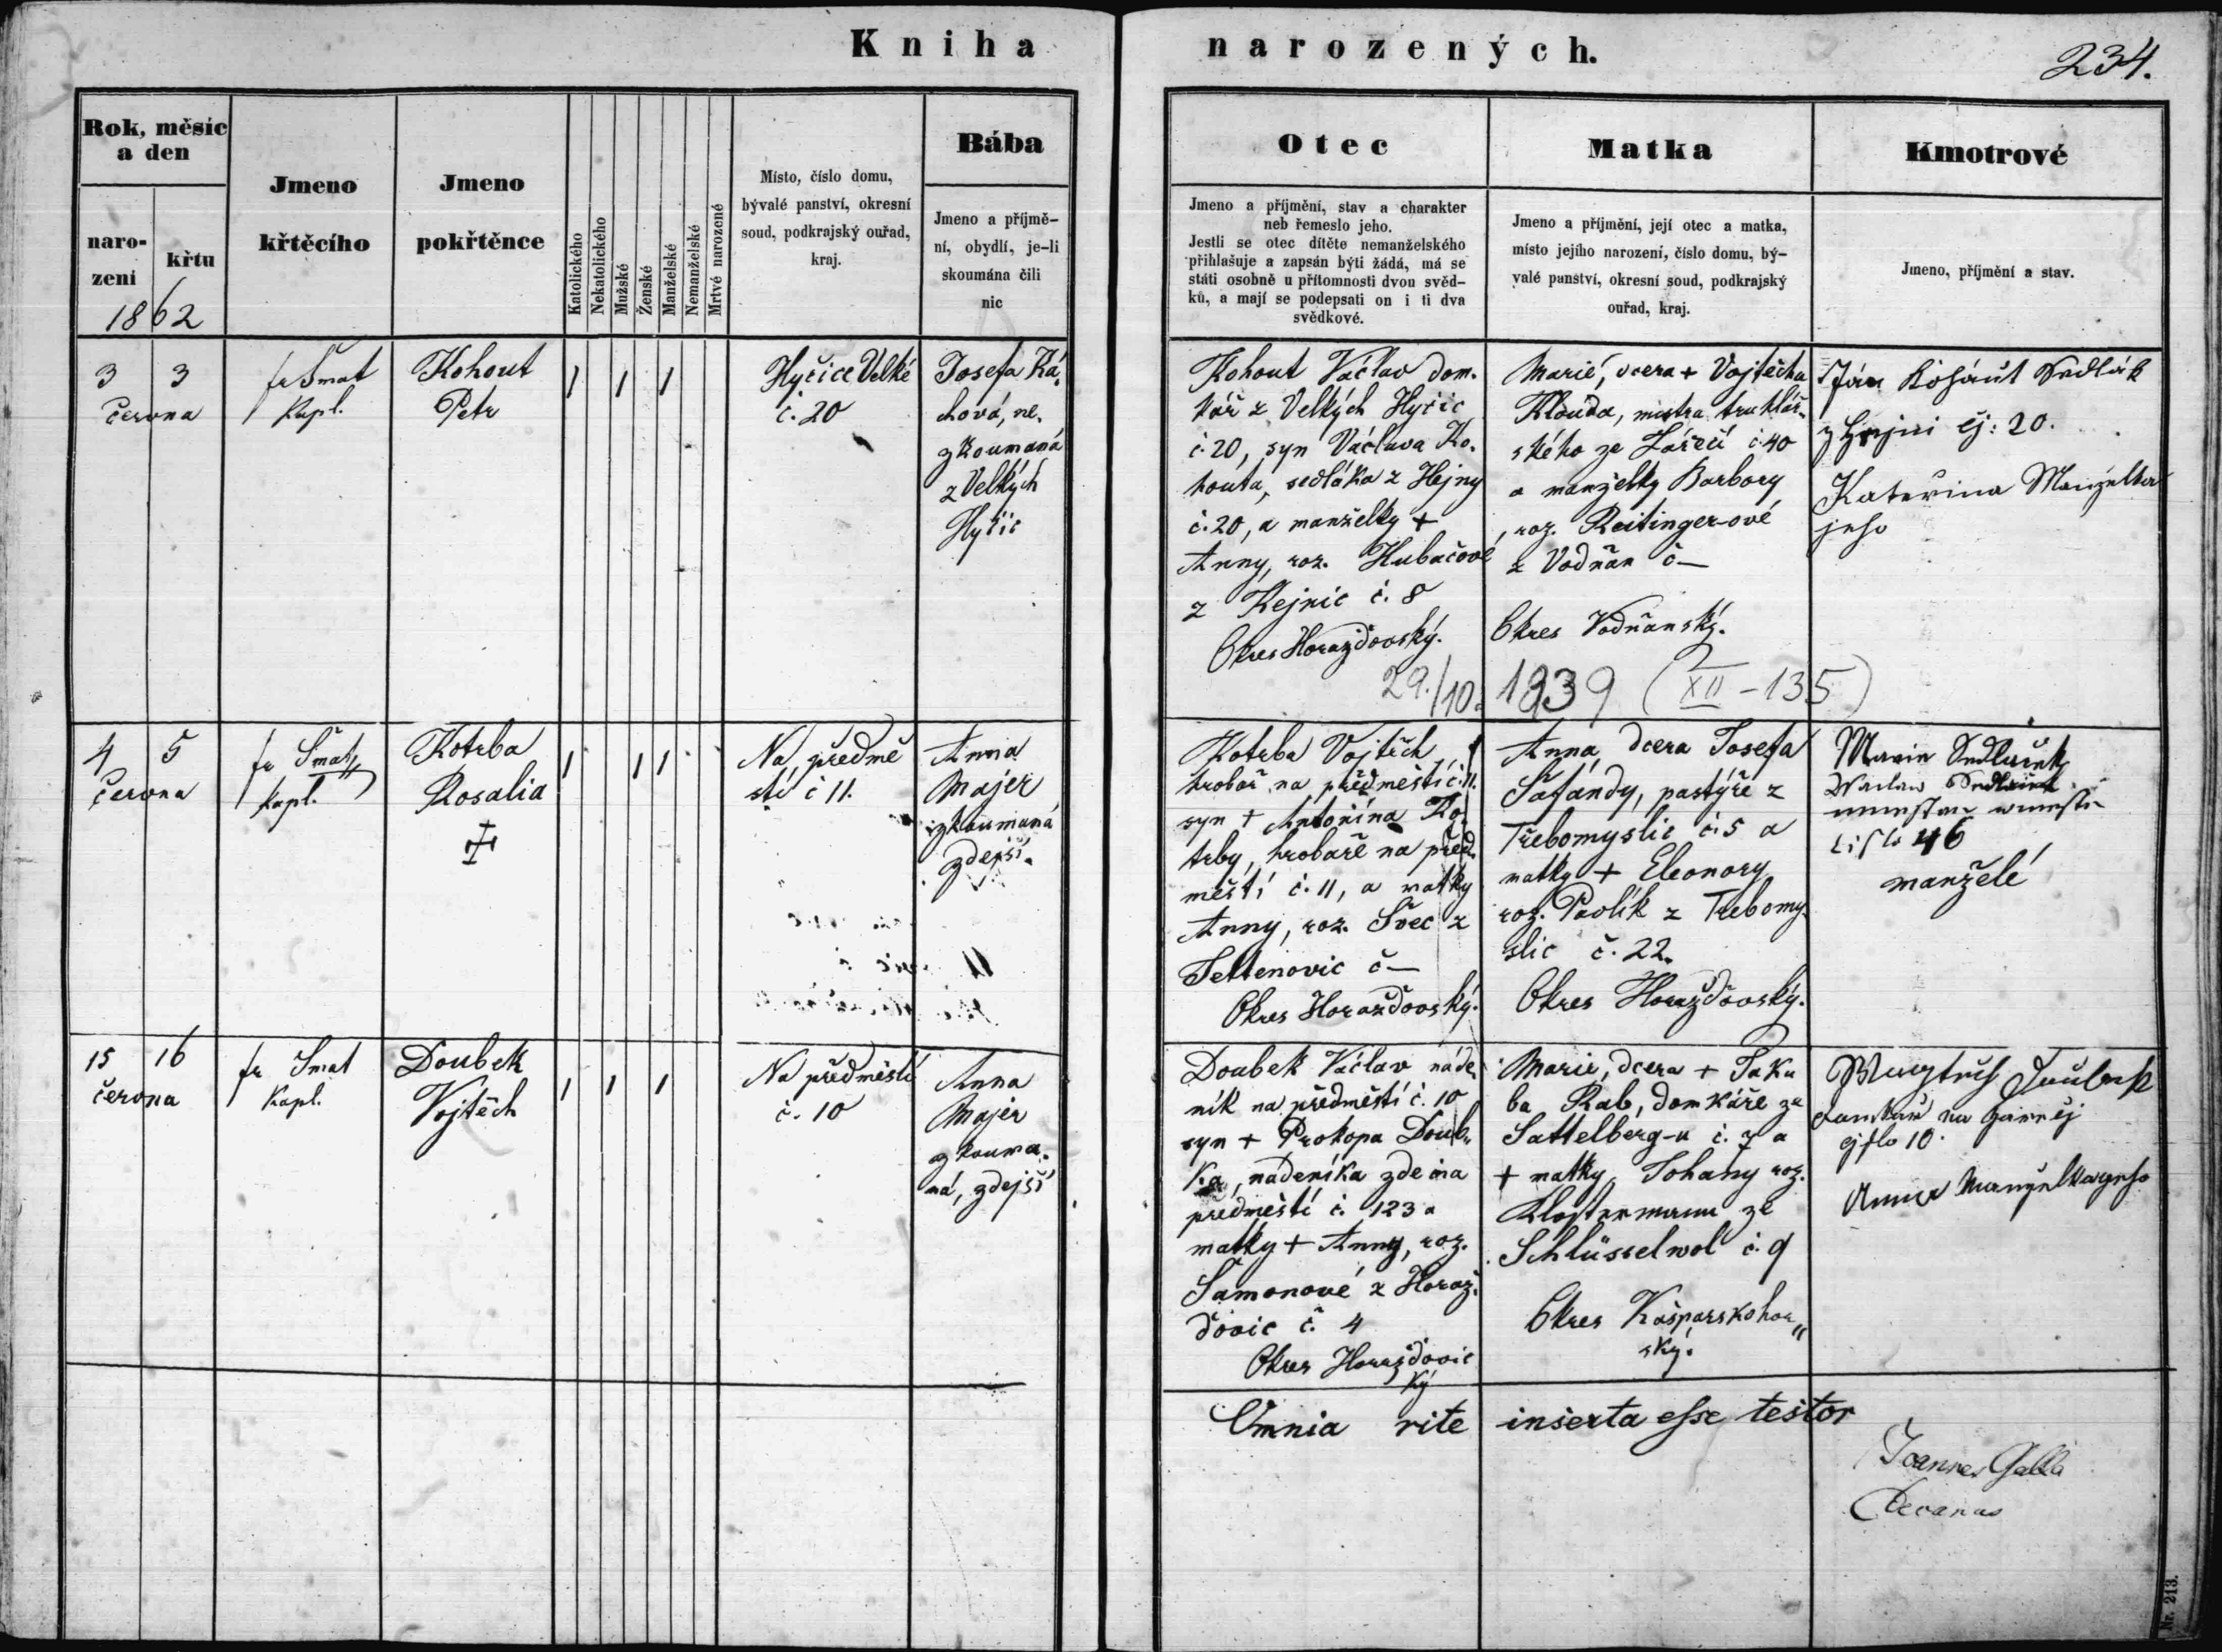 Kniha narozených.
234.
Rok, měsíc
a den
naro-
zení
křtu
1862
Jmeno
křtěcího
Jmeno
pokřtěnce
Katolického
Nekatolického
Mužské
Ženské
Manželské
Nemanželské
Mrtvé narozené
Místo, číslo domu,
bývalé panství, okresní
soud, podkrajský ouřad,
kraj.
Bába
Jmeno a příjmě-
ní, obydlí, je-li
skoumána čili
nic
Otec
Jmeno a příjmění, stav a charakter
neb řemeslo jeho.
Jestli se otec dítěte nemanželského
přihlašuje a zapsán býti žádá, má se
státi osobně u přítomnosti dvou svěd-
ků, a mají se podepsati on i ti dva
svědkové.
Matka
Jmeno a příjmění, její otec a matka,
místo jejího narození, číslo domu, bý-
valé panství, okresní soud, podkrajský
ouřad, kraj.
Kmotrové
Jmeno, příjmění a stav.
3 3
června
fr Šmat
Kapl.
Kohout
Petr
1 1 1
Hyčice Velké
č. 20
Josefa Ká-
chová, ne-
zkoumaná
z Velkých
Hyčic
Kohout Václav dom-
kář z Velkých Hyčic
č. 20, syn Václava Ko-
houta, sedláka z Hejny
č. 20, a manželky +
Anny, roz. Kubačové
z Kejnic č. 8
Okres Horažďovský.
Marie, dcera + Vojtěcha
Klouda, mistra truhlář-
ského ze Zářečí č. 40
a manželky Barbory
, roz. Reitinger-ové
z Vodňan č —
Okres Vodňanský.
Ján Kohaut Sedlák
z Hejni čj: 20.
Kateřina Manželka
jeho
29./10. 1939 (XII - 135)
4 5
června
fr Šmat
Kapl.
Kotrba
Rosalia
1 1 1
Na předmě
stí č 11.
Anna
Majer
zkoumaná
zdejší.
Kotrba Vojtěch
hrobař na předměstí č. 11.
syn + Antonína Ko-
trby, hrobaře na před-
městí č. 11, a matky
Anny, roz. Švec z
Tettenovic č —
Okres Horažďovský.
Anna, dcera Josefa
Šafándy, pastýře z
Třebomyslic č. 5 a
matky + Eleonory
roz. Pavlík z Třebomy-
slic č. 22.
Okres Horažďovský.
Marie Sedlaček
Waclaw Sedlaček
číslo 46
manželé
15 16
června
fr Šmat
Kapl.
Doubek
Vojtěch
1 1 1
Na předměstí
č. 10
Anna
Majer
zkouma-
ná, zdejší
Doubek Václav náde-
ník na předměstí č. 10
syn + Prokopa Doub-
ka, nádeníka zde na
předměstí č. 123 a
matky + Anny, roz.
Šamonové z Horaž-
ďovic č. 4
Okres Horažďovic
ký
Marie, dcera + Jaku
ba Rab, domkáře ze
Sattelberg-u č. 7 a
+ matky Johany roz.
Klostermann ze
Schlüsselwol č. 9
Okres Kašparskohor"
ský.
Woytěch Daubek
čjslo 10.
Anna Manželka jeho
Omnia rite inserta esse testor
Joannes Galli
Decanus
Nr. 213.